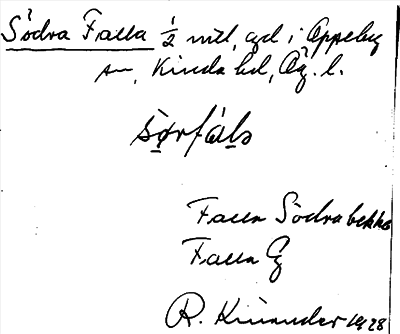 Södra Falla ½ mtl, gd i Oppeby
sn, Kinda hd, Ög. l.
sö̀rfáls
Falla Södra bekke
Falla Eg
R. Kinander 1928